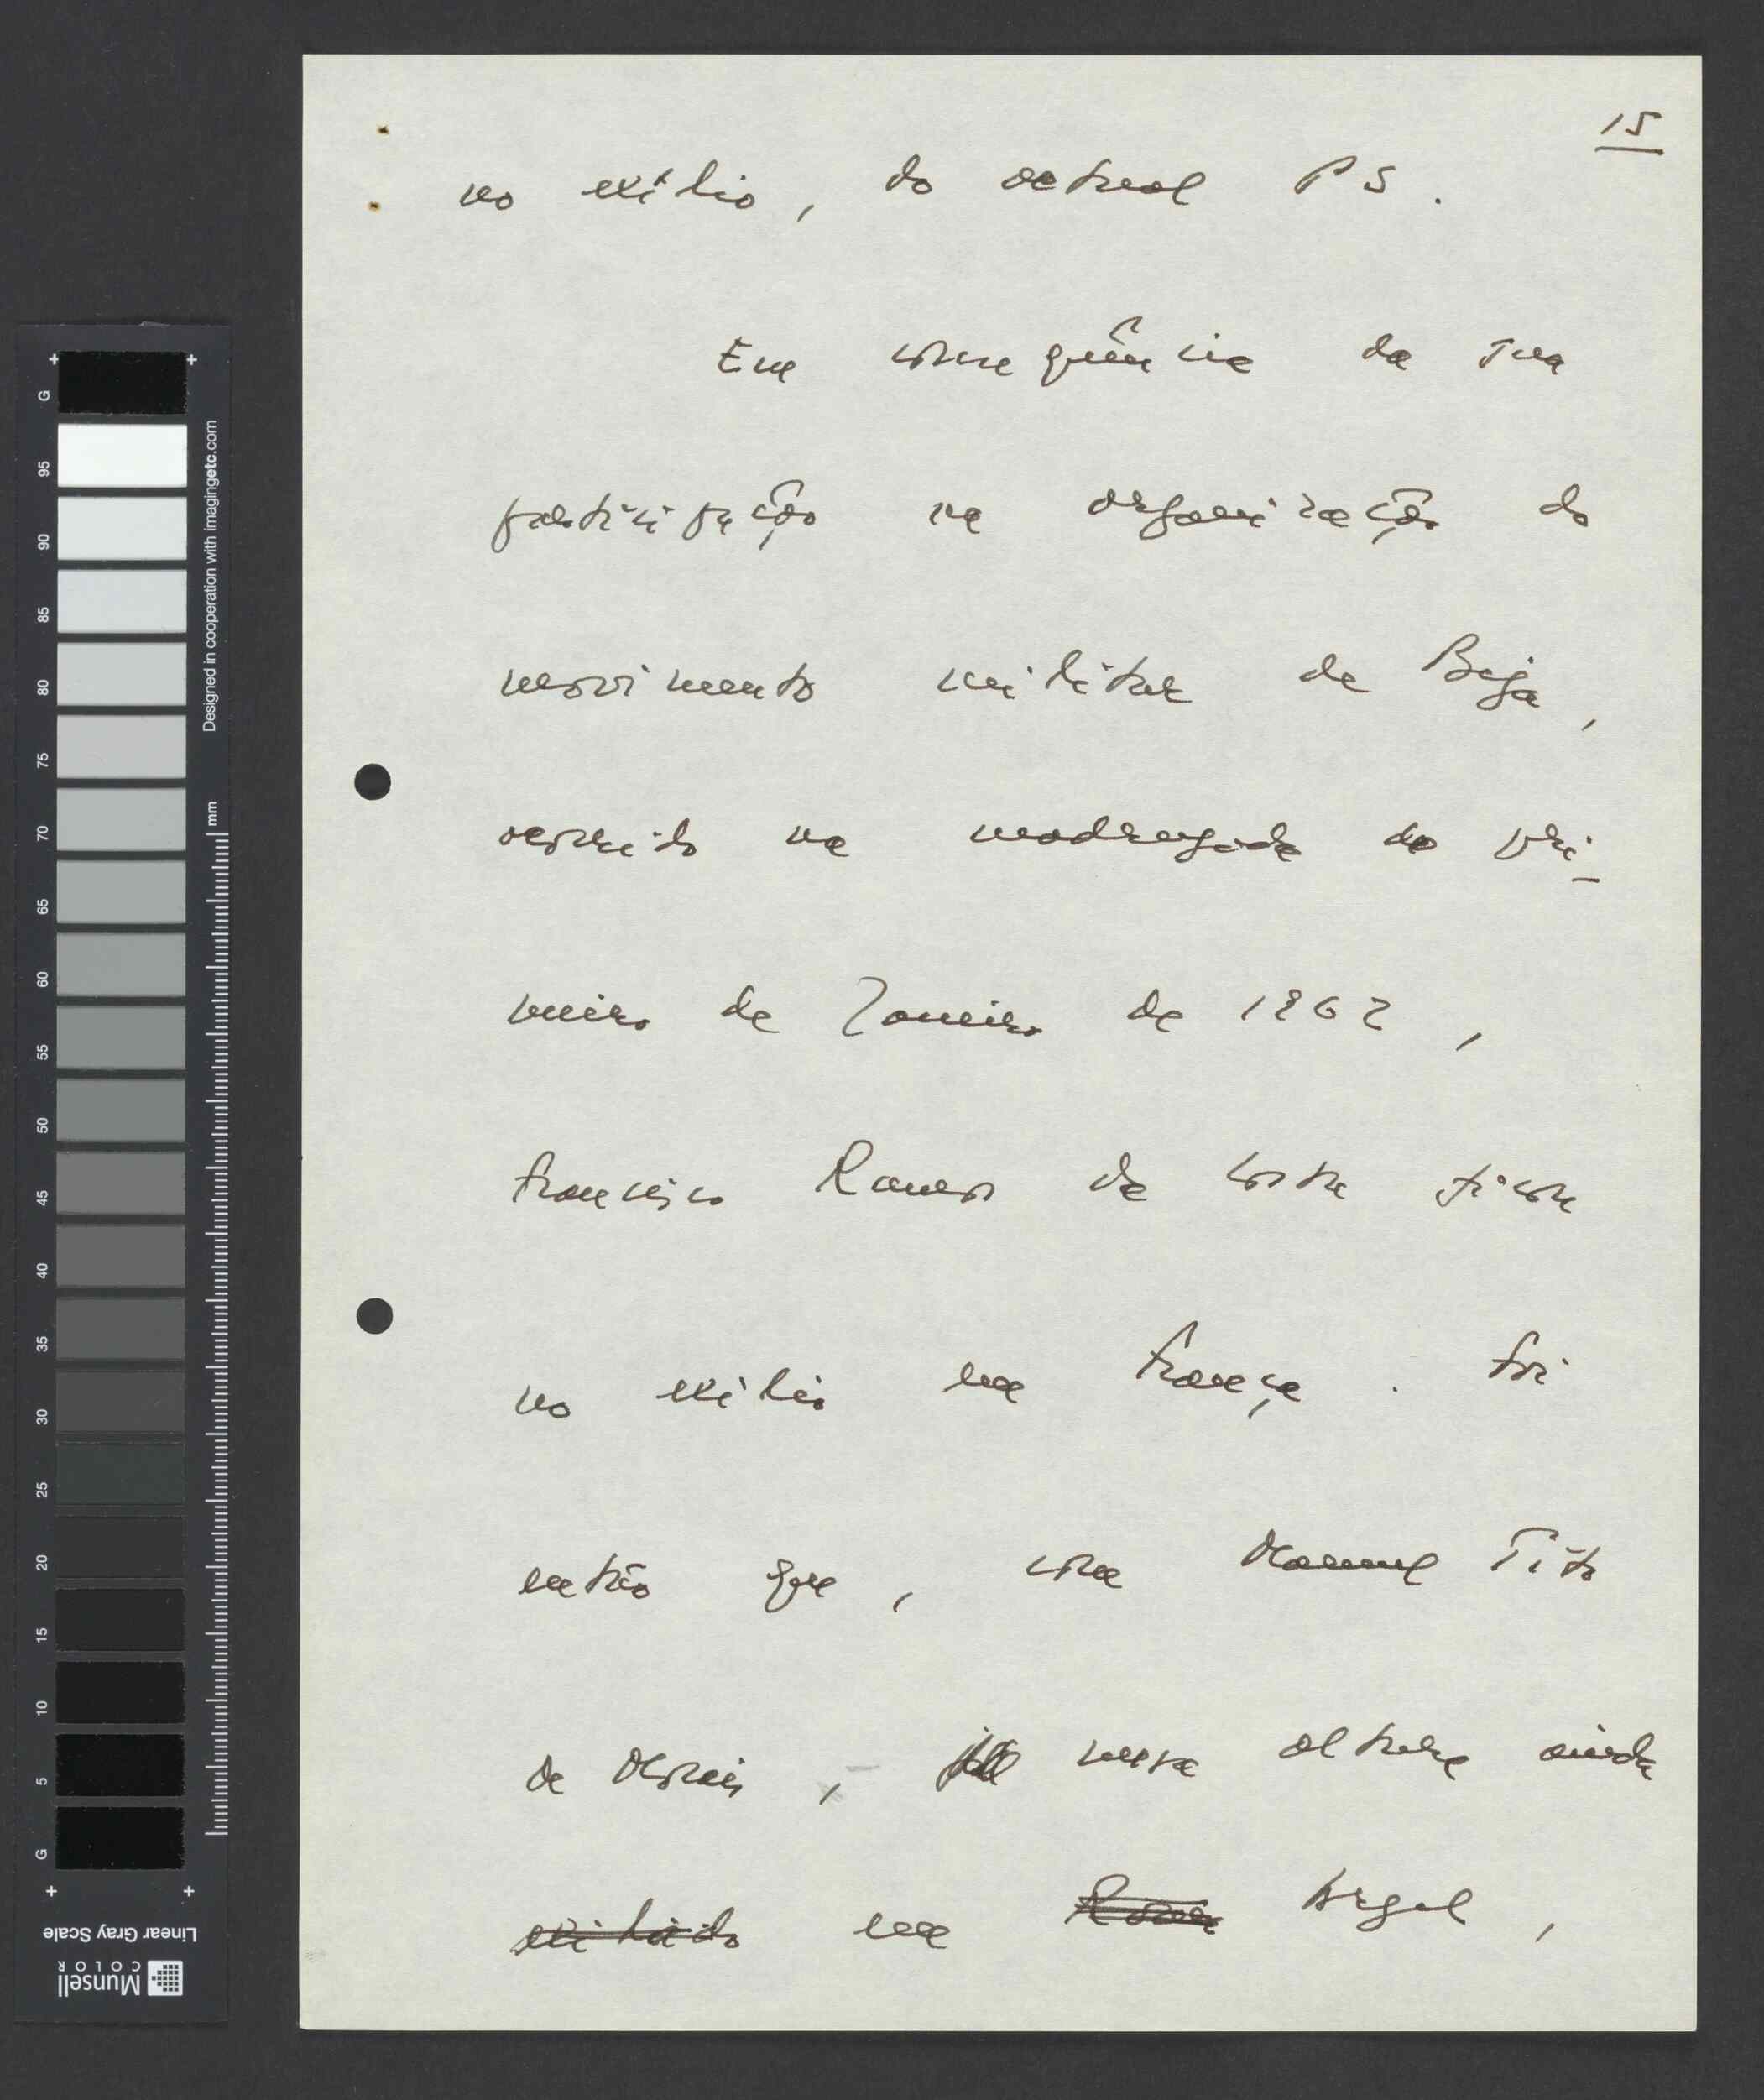 15
no exílio, do actual PS.
Em consequência da sua
participação na organização do
movimento militar de Beja,
ocorrido na madrugada do pri-
meiro de Janeiro de 1962,
Francisco Ramos da Costa ficou
no exílio em França. Foi
então que, com Manuel Tito
de Morais, nessa altura ainda
exilado em Argel,
G 95 90 85 80 75 70 65 60 55 50 45 40 35 30 25 20 15 10 5 G
Designed in cooperation with imagingetc.com
mm
Linear Gray Scale
Munsell
COLOR